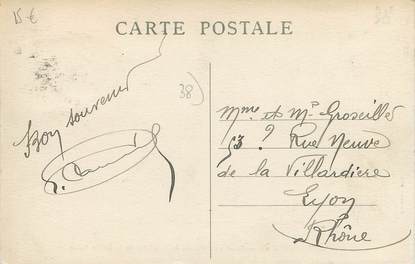 15€
CARTE POSTALE
38)
Bon souvenir
Mme et Mr Groseiller
53 ? Rue Neuve
de la Villardiere
Lyon
Rhône